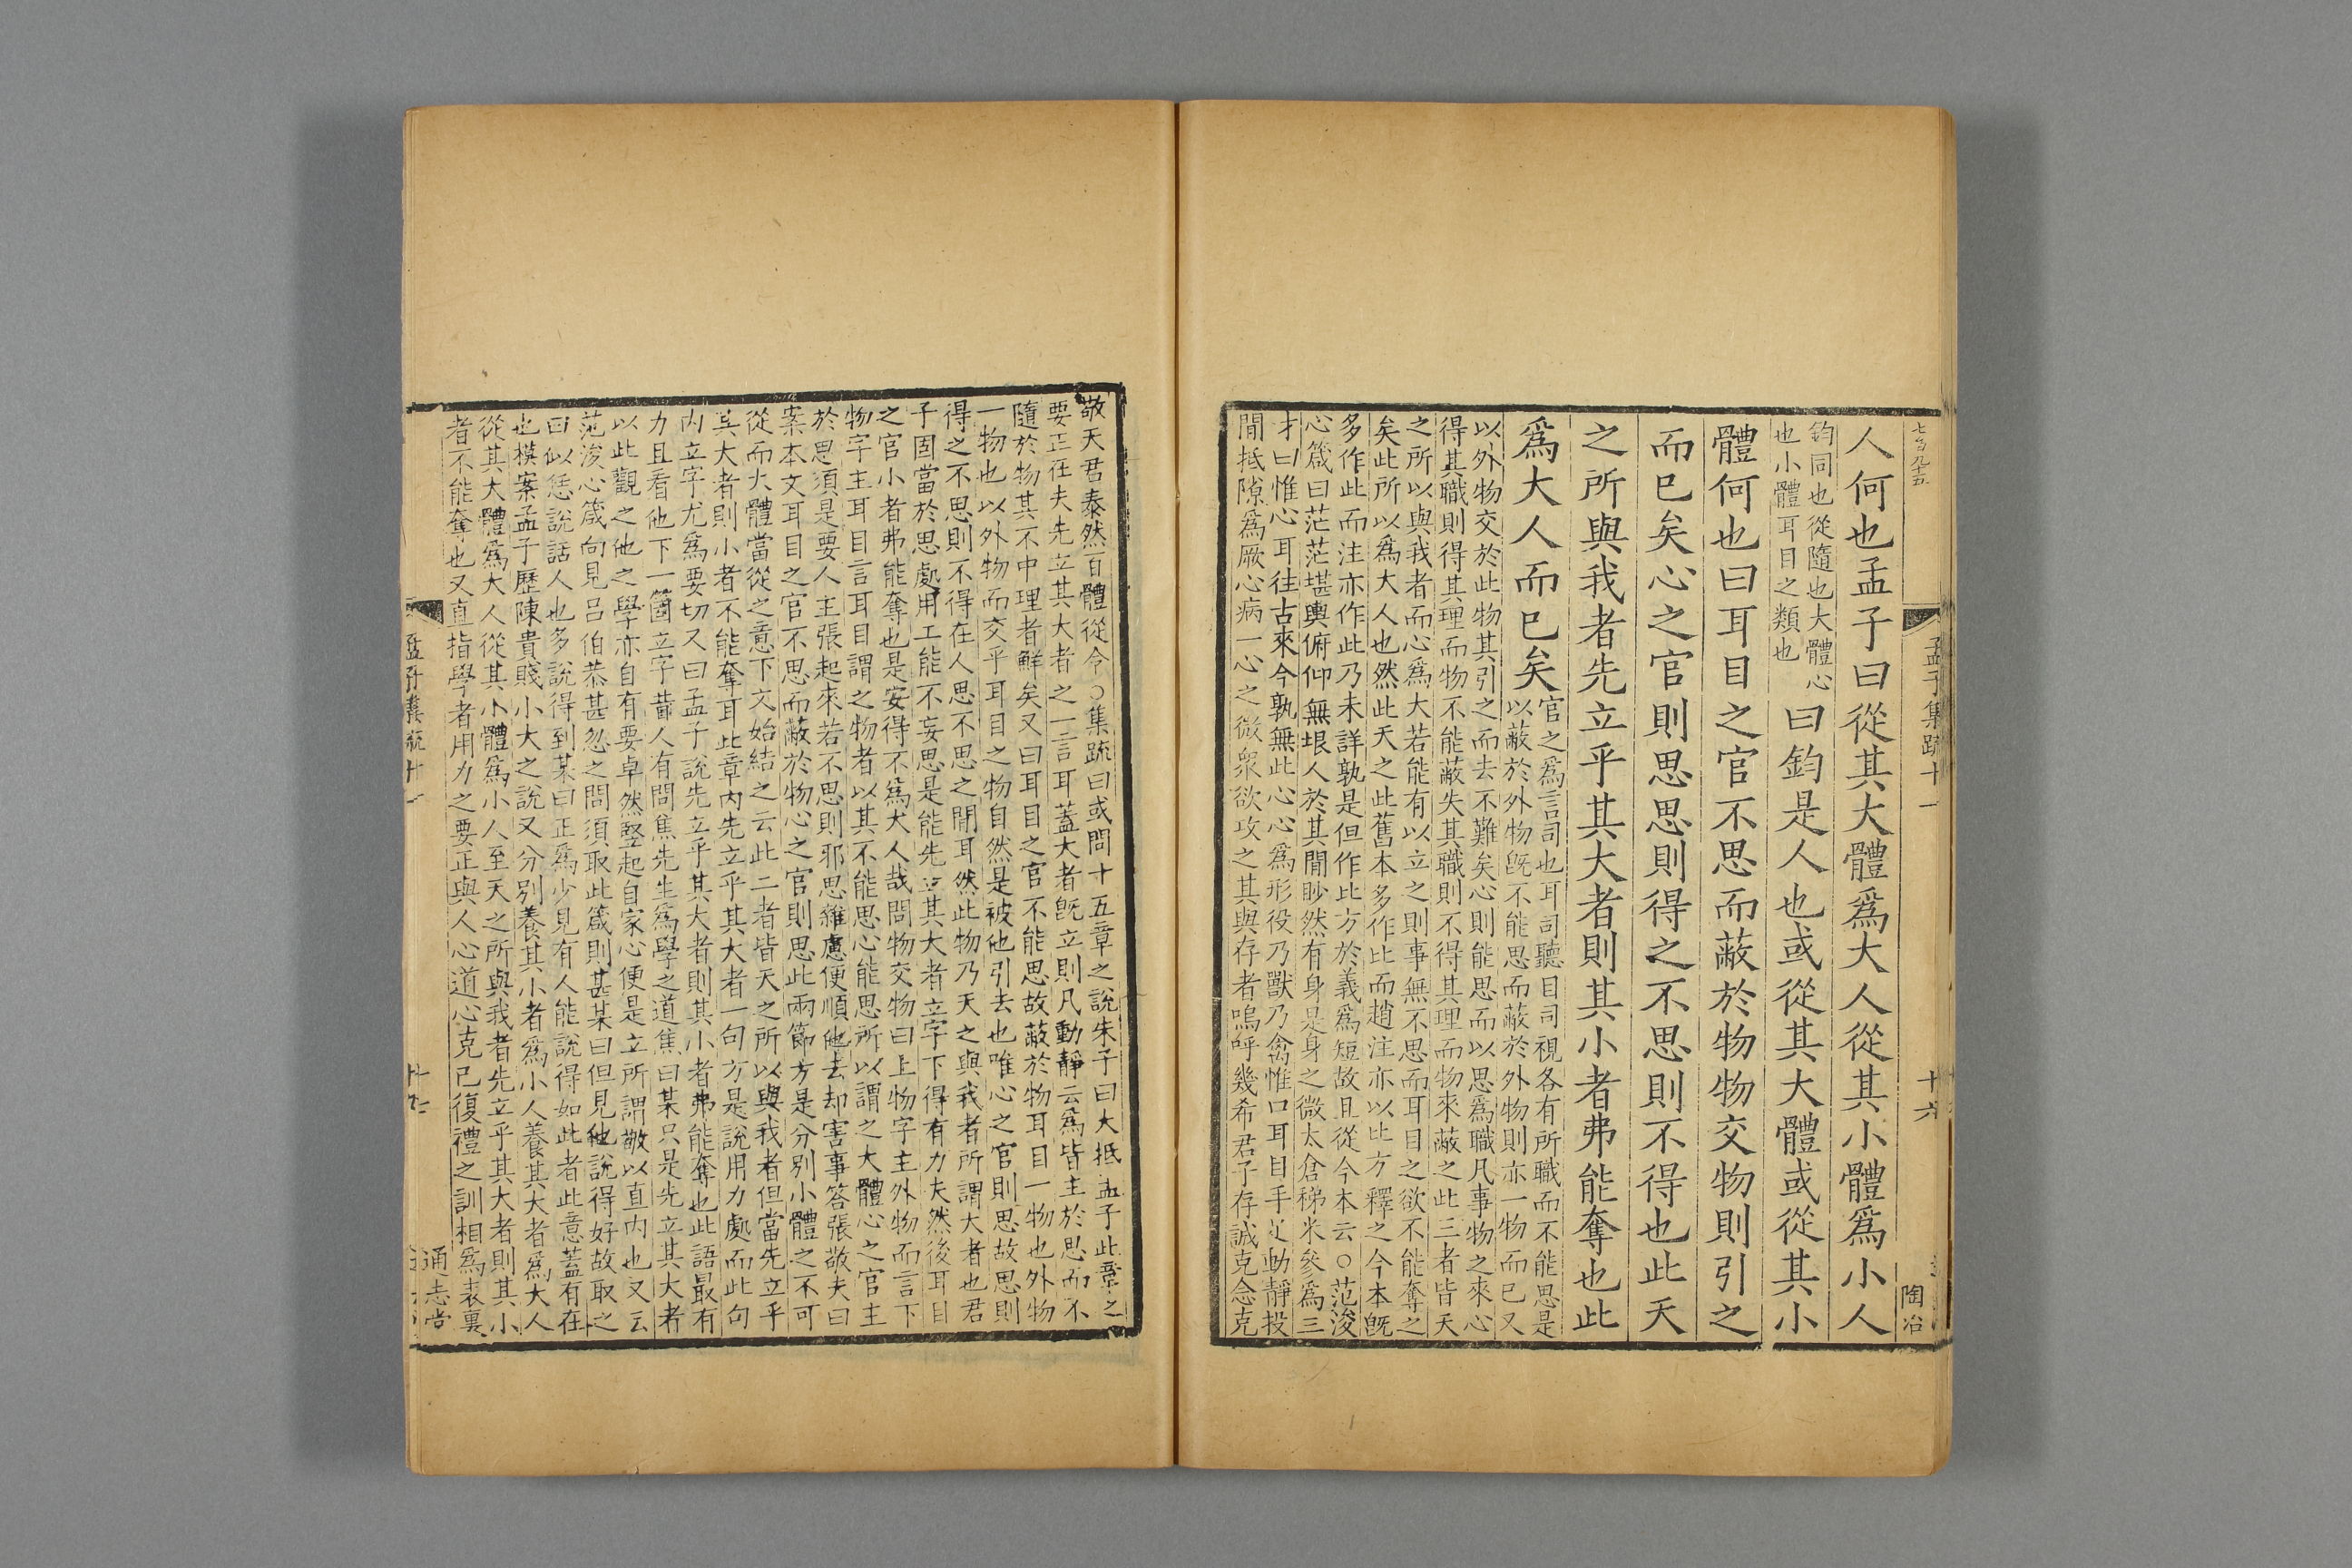 孟子集疏十一
十六
陶冶
人何也孟子曰從其大體爲大人從其小體爲小人
鈞同也從隨也大體心
也小體耳目之類也
曰鈞是人也或從其大體或從其小
體何也曰耳目之官不思而蔽於物物交物則引之
而已矣心之官則思思則得之不思則不得也此天
之所與我者先立乎其大者則其小者弗能奪也此
爲大人而已矣
官之爲言司也耳司聽目司視各有所職而不能思是
以蔽於外物旣不能思而蔽於外物則亦一物而已又
以外物交於此物其引之而去不難矣心則能思而以思爲職凡事物之來心
得其職則得其理而物不能蔽失其職則不得其理而物來蔽之此三者皆天
之所以與我者而心爲大若能有以立之則事無不思而耳目之欲不能奪之
矣此所以爲大人也然此天之此舊本多作比而趙注亦以比方釋之今本旣
多作此而注亦作此乃未詳孰是但作比方於義爲短故且從今本云○范浚
心箴曰茫茫堪輿俯仰無垠人於其閒眇然有身是身之微太倉稊米參爲三
才曰惟心耳往古來今孰無此心心爲形役乃獸乃禽惟口耳目手足動靜投
閒抵隙爲厥心病一心之微衆欲攻之其與存者嗚呼幾希君子存誠克念克
敬天君泰然百體從令○集疏曰或問十五章之說朱子曰大抵孟子此章之
要正在夫先立其大者之一言耳蓋大者旣立則凡動靜云爲皆主於思而不
隨於物其不中理者鮮矣又曰耳目之官不能思故蔽於物耳目一物也外物
一物也以外物而交乎耳目之物自然是被他引去也唯心之官則思故思則
得之不思則不得在人思不思之閒耳然此物乃天之與我者所謂大者也君
子固當於思處用工能不妄思是能先立其大者立字下得有力夫然後耳目
之官小者弗能奪也是安得不爲大人哉問物交物曰上物字主外物而言下
物字主耳目言耳目謂之物者以其不能思心能思所以謂之大體心之官主
於思須是要人主張起來若不思則邪思雜慮便順他去却害事答張敬夫曰
案本文耳目之官不思而蔽於物心之官則思此兩節方是分別小體之不可
從而大體當從之意下文始結之云此二者皆天之所以與我者但當先立乎
其大者則小者不能奪耳此章內先立乎其大者一句方是說用力處而此句
內立字尤爲要切又曰孟子說先立乎其大者則其小者弗能奪也此語最有
力且看他下一箇立字昔人有問焦先生爲學之道焦曰某只是先立其大者
以此觀之他之學亦自有要卓然竪起自家心便是立所謂敬以直內也又云
范浚心箴向見呂伯恭甚忽之問須取此箴則甚某曰但見他說得好故取之
曰似恁說話人也多說得到某曰正爲少見有人能說得如此者此意蓋有在
也模案孟子歷陳貴賤小大之說又分別養其小者爲小人養其大者爲大人
從其大體爲大人從其小體爲小人至天之所與我者先立乎其大者則其小
者不能奪也又直指學者用力之要正與人心道心克已復禮之訓相爲表裏
孟子集疏十一
十七
通志堂